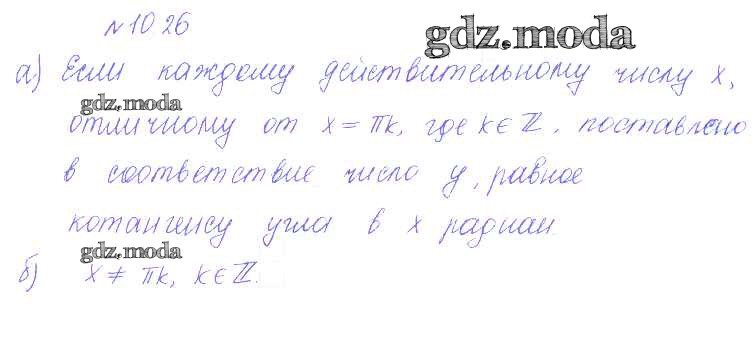 №1026
gdz.moda
а) Если каждому действительному числу x,
gdz.moda
отличному от x = πk, где k ∈ ℤ, поставлено
в соответствие число y, равное
котангенсу угла в x радиан
gdz.moda
б) x ≠ πk, k ∈ ℤ.